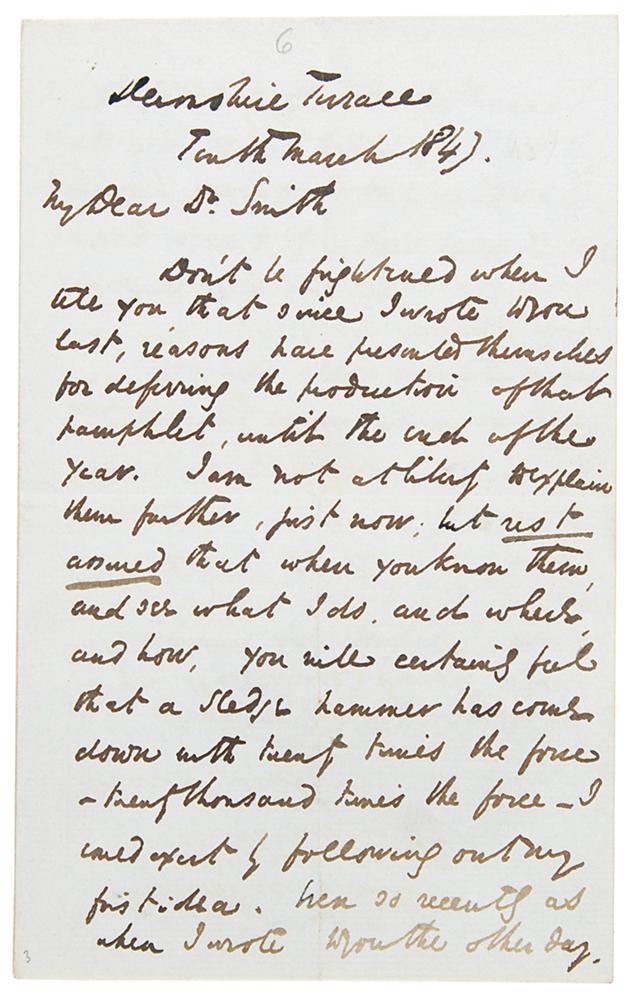 6
Devonshire Terrace
Tenth March 1843.
My Dear Dr. Smith
Don't be frightened when I
tell you that since I wrote to you
last, reasons have presented themselves
for deferring the production of that
pamphlet, until the end of the
year. I am not at liberty to explain
them further, just now; but rest
assured that when you know them,
and see what I do, and where,
and how, you will certainly feel
that a sledge hammer has come
down with twenty times the force
- twenty thousand times the force - I
could exert by following out my
first idea. Even so recently as
when I wrote to you the other day.
3